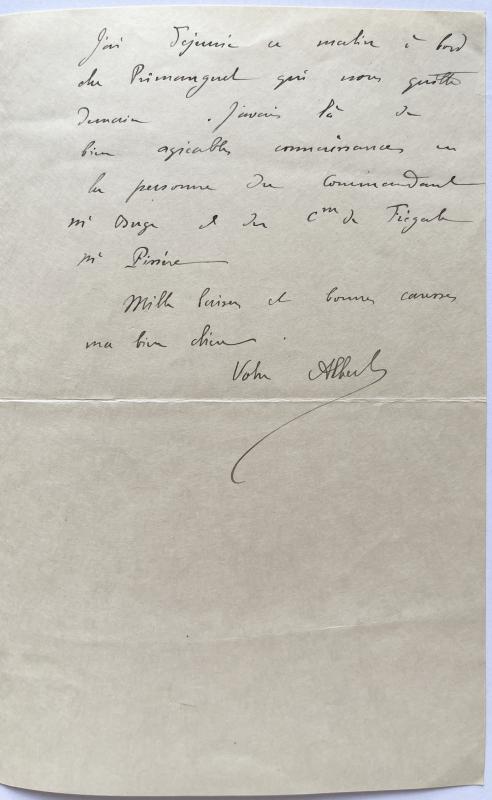 J'ai déjeuné ce matin à bord
du Primauguet qui nous quitte
demain. J'avais là de
bien agréables connaissances en
la personne du Commandant
Mr et du Cm de Frégate
Mr
Mille baisers et bonnes caresses
ma bien chère.
Votre Albert